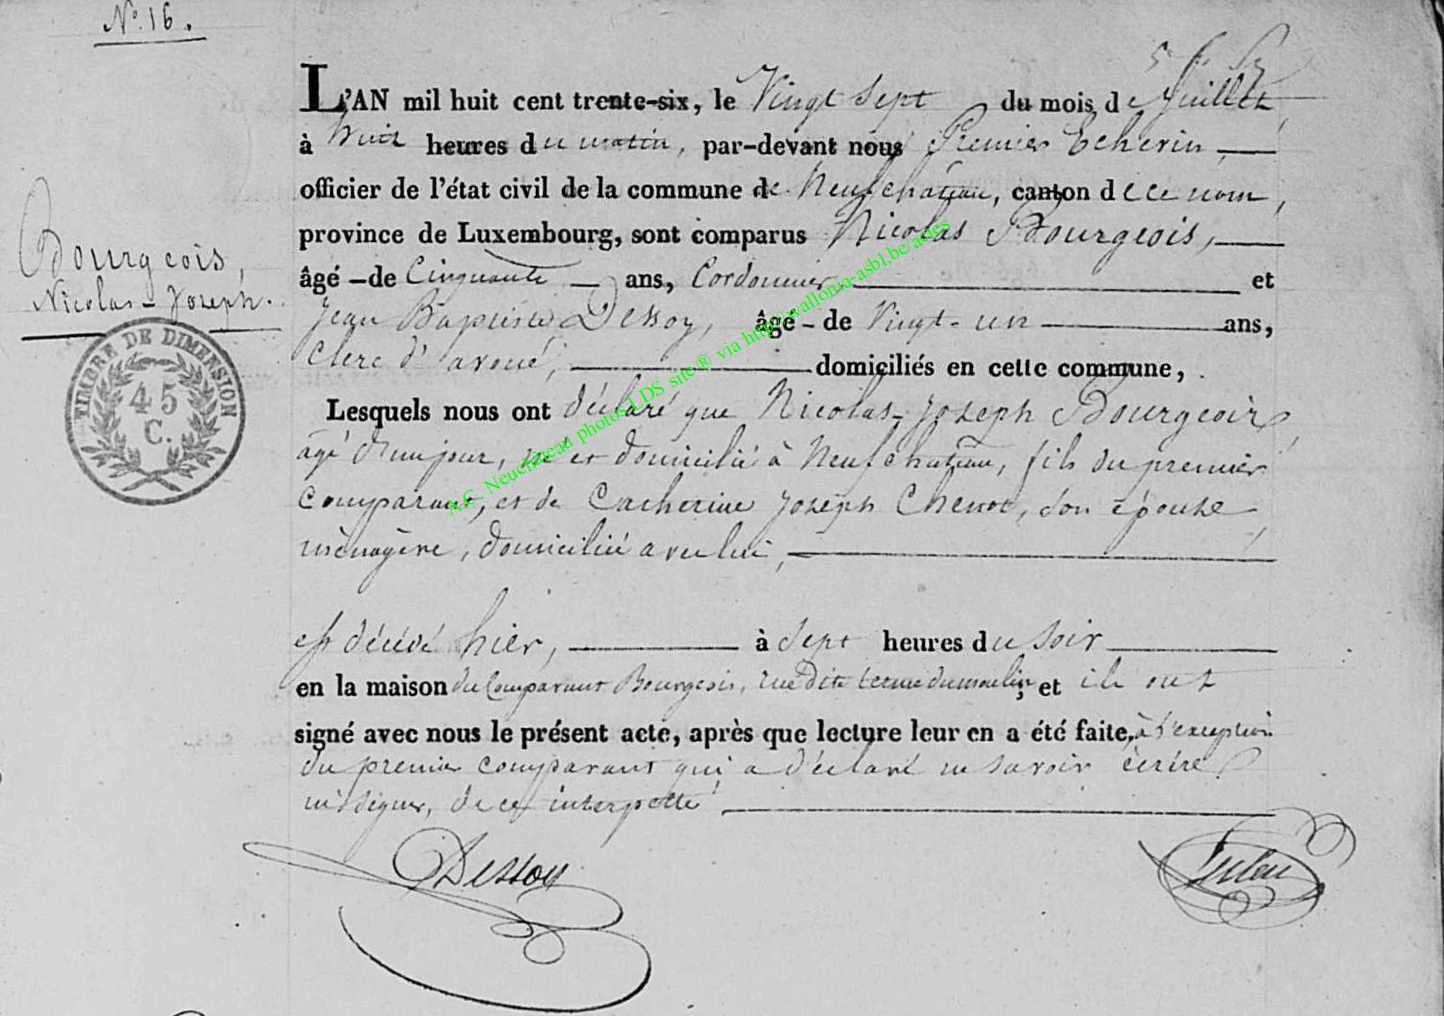 N.º 16.
L'AN mil huit cent trente-six, le Vingt Sept du mois de Juillet,
à huit heures du matin, par-devant nous Premier Echevin,
officier de l'état civil de la commune de Neufchateau, canton de ce nom,
province de Luxembourg, sont comparus Nicolas Bourgeois,
âgé de Cinquante ans, Cordonnier et
Jean Baptiste Dessoy, âgé de Vingt-un ans,
Clerc d'avoué, domiciliés en cette commune,
Lesquels nous ont déclaré que Nicolas-Joseph Bourgeois,
âgé d'un jour, né et domicilié à Neufchateau, fils du premier
comparant, et de Catherine Joseph Chenot, son épouse,
ménagère, domiciliée avec lui,
est décédé hier, à Sept heures du soir
en la maison du Comparant Bourgeois, rue dite du moulin, et ils ont
signé avec nous le présent acte, après que lecture leur en a été faite, à l'exception
du premier comparant qui a déclaré ne savoir écrire
ni signer, de ce interpellé
Bourgeois,
Nicolas-Joseph.
TIMBRE DE DIMENSION
45
C.
A.C. Neuchâteau photos LDS site ® via http://wallonia-asbl.be/actes
Dessoy